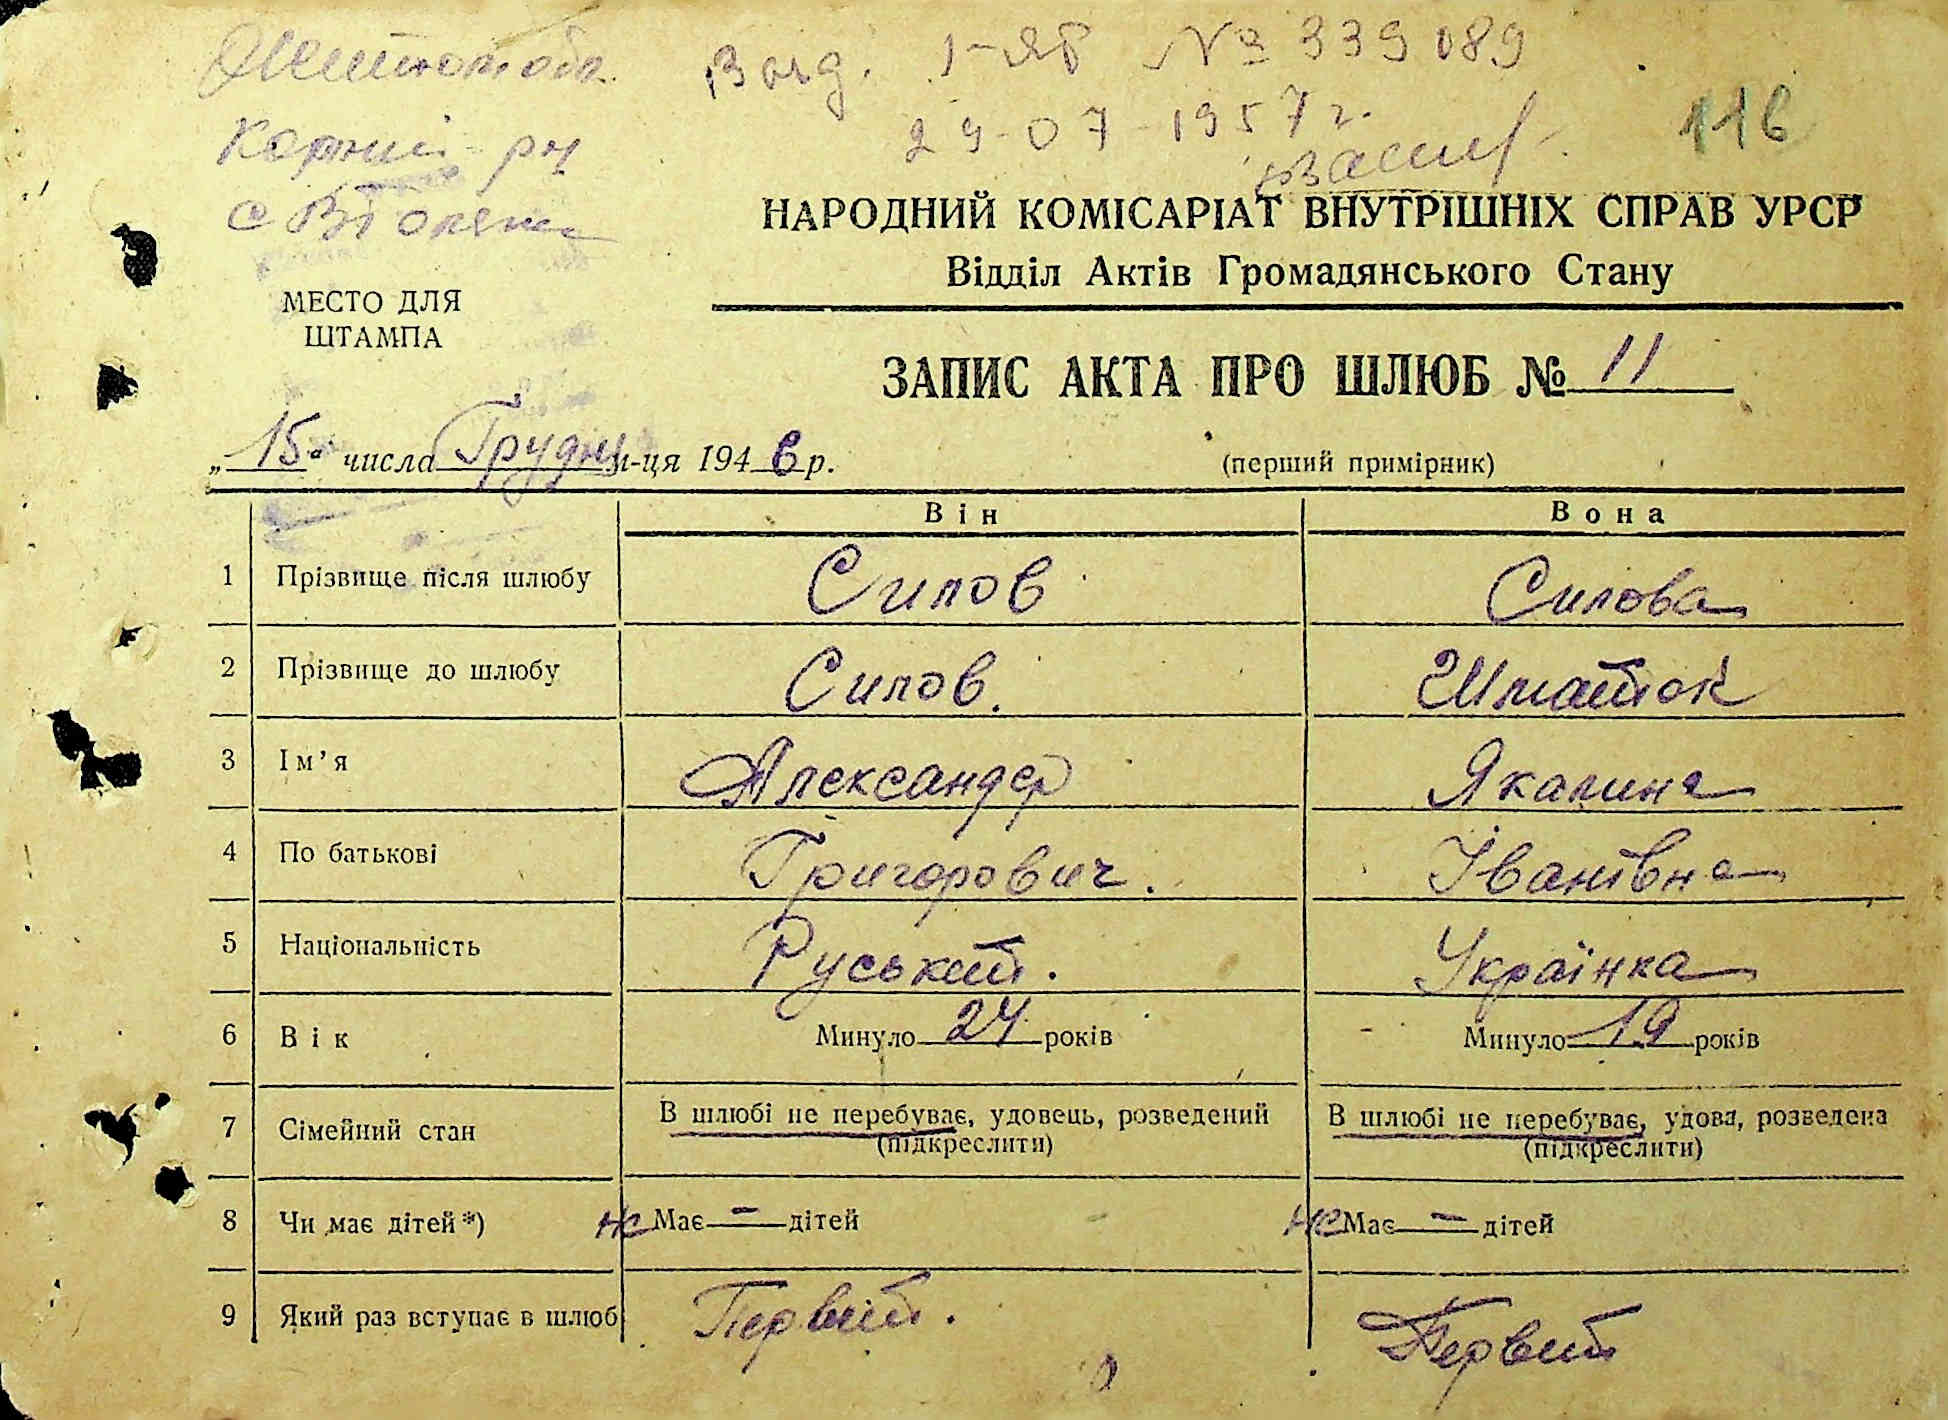 Житом обл.
Корнин рн
с Вʼ
Выд. I-ЯБ № 339089
29-07-1957 г.
116
НАРОДНИЙ КОМІСАРІАТ ВНУТРІШНІХ СПРАВ УРСР
Відділ Актів Громадянського Стану
МЕСТО ДЛЯ
ШТАМПА
ЗАПИС АКТА ПРО ШЛЮБ № 11
„15" числа Грудня м-ця 1946 р.
(перший примірник)
Він Вона
1 Прізвище після шлюбу Силов Силова
2 Прізвище до шлюбу Силов. Шматок
3 Ім'я Александер Якилина
4 По батькові Григорович. Іванівна
5 Національність Руський. Українка
6 Вік Минуло 24 років Минуло 19 років
7 Сімейний стан В шлюбі не перебуває, удовець, розведений В шлюбі не перебуває, удова, розведена
(підкреслити) (підкреслити)
8 Чи має дітей*) не Має - дітей не Має - дітей
9 Який раз вступає в шлюб Первий. Первий